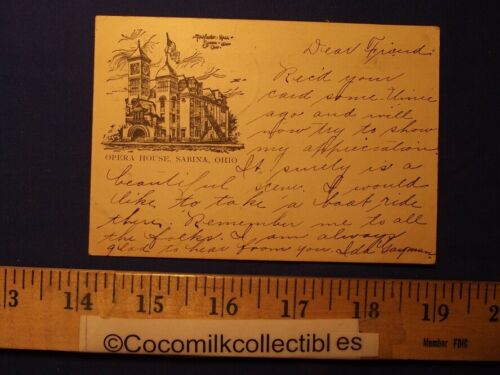 Dear Friend:
Rec'd your
card some time
ago and will
now try to show
my appreciation.
OPERA HOUSE, SABINA, OHIO
It surely is a
beautiful scene. I would
like to take a boat ride
there. Remember me to all
the folks. I am always
glad to hear from you. Ida
13 14 15 16 17 18 19
Member FDIC
©Cocomilkcollectibl es